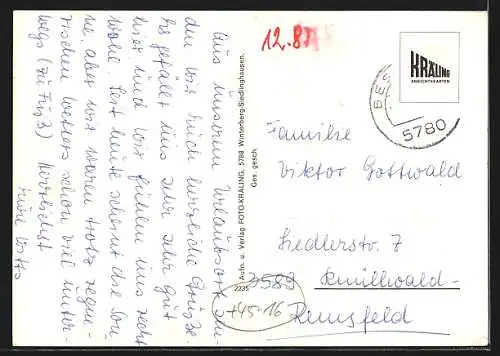 Aus unserem Urlaubsort sen-
den wir Euch herzliche Grüsse.
Es gefällt uns sehr sehr gut
hier und wir fühlen uns sehr
wohl. Seit heute scheint die Son-
ne, aber wir waren trotz regne-
rischen Wetters schon viel unter-
wegs (zu Fuß) herzlichst
Eure
2235 Aufn. u. Verlag FOTO-KRÄLING, 5788 Winterberg-Siedlinghausen,
Ges. gesch.
12.87
KRÄLING
ANSICHTSKARTEN
BES
5780
Familie
Viktor Gottwald
Siedlerstr. 7
Smillwald-
Remsfeld
3589
+45-16